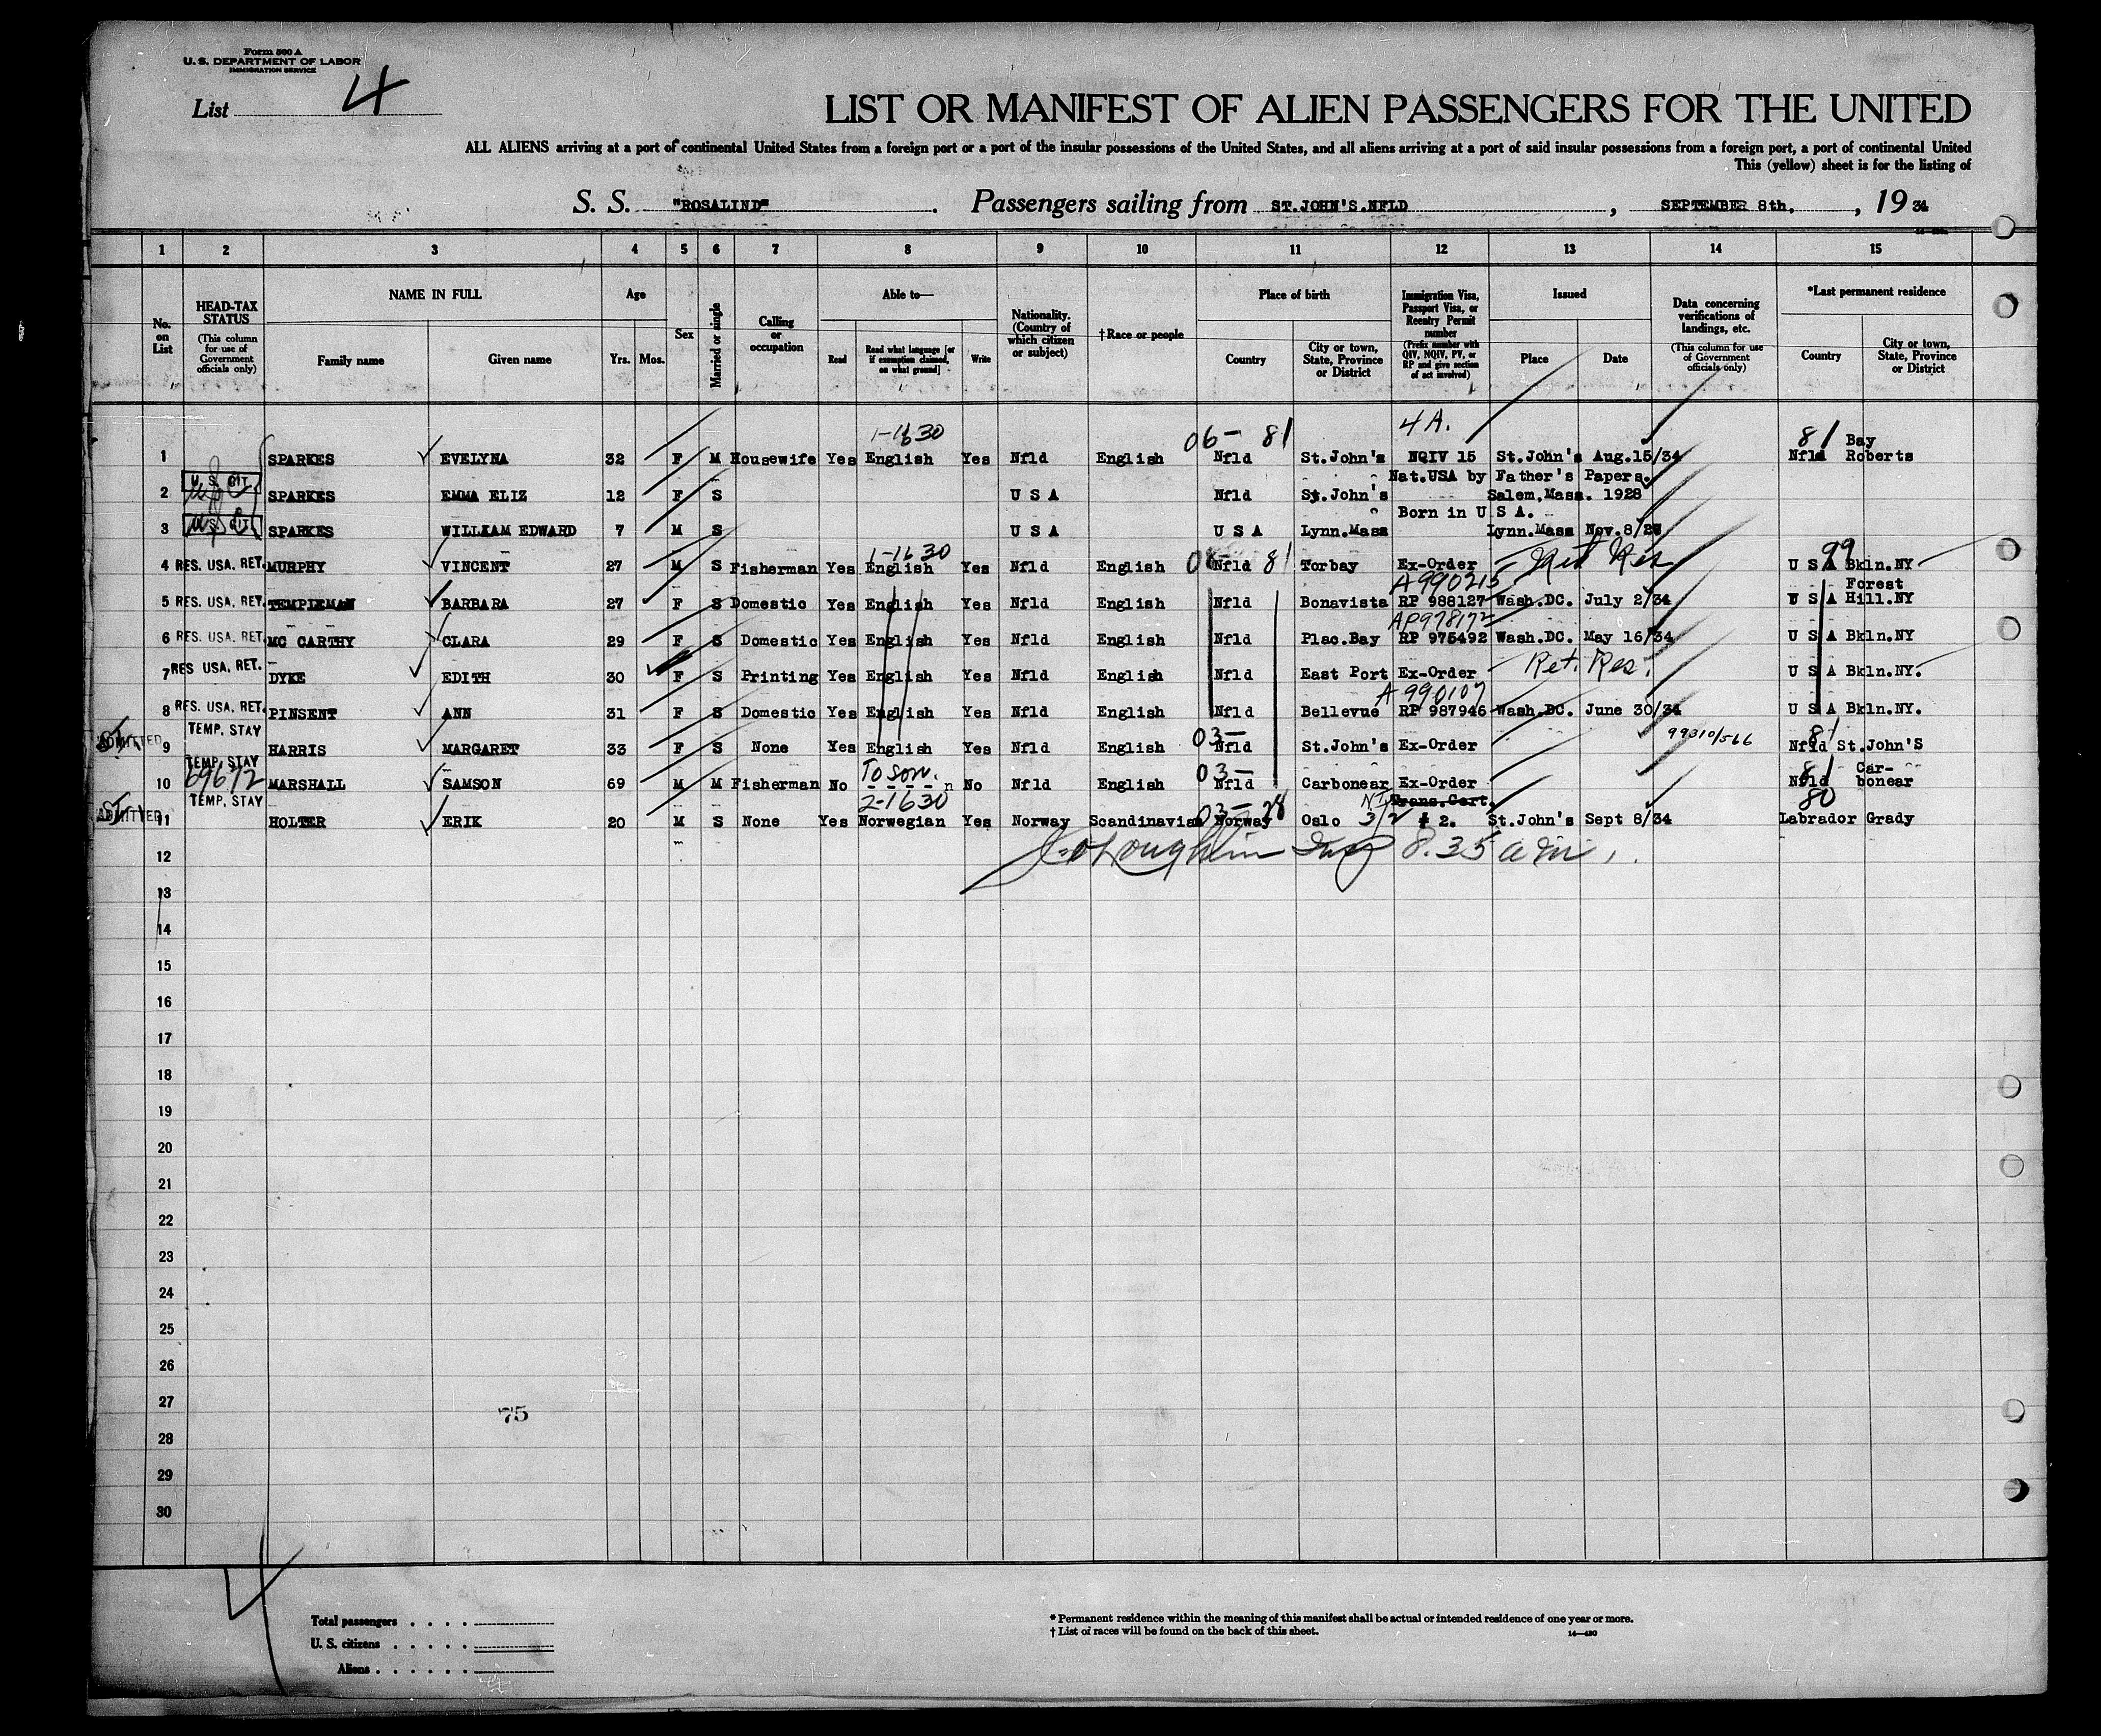 Form 500 A
U. S. DEPARTMENT OF LABOR
IMMIGRATION SERVICE
List 4
LIST OR MANIFEST OF ALIEN PASSENGERS FOR THE UNITED
ALL ALIENS arriving at a port of continental United States from a foreign port or a port of the insular possessions of the United States, and all aliens arriving at a port of said insular possessions from a foreign port, a port of continental United
This (yellow) sheet is for the listing of
S. S. "ROSALIND". Passengers sailing from ST.JOHN'S.NFLD, SEPTEMBER 8th., 19 34
1 2 3 4 5 6 7 8 9 10 11 12 13 14 15
No. on List
HEAD-TAX STATUS
(This column for use of Government officials only)
NAME IN FULL
Family name Given name
Age
Yrs. Mos.
Sex
Married or single
Calling or occupation
Able to—
Read Read what language [or if exemption claimed, on what ground] Write
Nationality. (Country of which citizen or subject)
†Race or people
Place of birth
Country City or town, State, Province or District
Immigration Visa, Passport Visa, or Reentry Permit number
(Prefix number with QIV, NQIV, PV, or RP and give section of act involved)
Issued
Place Date
Data concerning verifications of landings, etc.
(This column for use of Government officials only)
*Last permanent residence
Country City or town, State, Province or District
1-1630 06- 81 4A. 81 Bay
1 SPARKES EVELYNA 32 F M Housewife Yes English Yes Nfld English Nfld St.John's NQIV 15 St.John's Aug.15/34 Nfld Roberts
U. S. CIT. Nat.USA by Father's Papers.
2 SPARKES EMMA ELIZ 12 F S U S A Nfld St.John's Salem,Mass. 1928
Born in U S A.
3 U. S. CIT. SPARKES WILLIAM EDWARD 7 M S U S A U S A Lynn.Mass Lynn.Mass Nov.8/26
1-1630 06- 81 Ret Res 99
4 RES. USA. RET. MURPHY VINCENT 27 M S Fisherman Yes English Yes Nfld English Nfld Torbay Ex-Order U S A Bkln.NY
A990215 Forest
5 RES. USA. RET. TEMPLEMAN BARBARA 27 F S Domestic Yes English Yes Nfld English Nfld Bonavista RP 988127 Wash.DC. July 2/34 U S A Hill.NY
AP978172
6 RES. USA. RET. MC CARTHY CLARA 29 F S Domestic Yes English Yes Nfld English Nfld Plac.Bay RP 975492 Wash.DC. May 16/34 U S A Bkln.NY
7 RES USA. RET. DYKE EDITH 30 F S Printing Yes English Yes Nfld English Nfld East Port Ex-Order Ret. Res. U S A Bkln.NY.
A990107
8 RES. USA. RET. PINSENT ANN 31 F S Domestic Yes English Yes Nfld English Nfld Bellevue RP 987946 Wash.DC. June 30/34 U S A Bkln.NY.
TEMP. STAY 03- 99310/566 81
ADMITTED 9 HARRIS MARGARET 33 F S None Yes English Yes Nfld English Nfld St.John's Ex-Order Nfld St.John'S
TEMP. STAY To son. 03- 81 Car-
10 69672 MARSHALL SAMSON 69 M M Fisherman No No Nfld English Nfld Carbonear Ex-Order Nfld bonear
TEMP. STAY 2-1630 03-28 Trans.Cert. 80
ADMITTED 11 HOLTER ERIK 20 M S None Yes Norwegian Yes Norway Scandinavian Norway Oslo 3/2 # 2. St.John's Sept 8/34 Labrador Grady
12 8.35 am.
13
14
15
16
17
18
19
20
21
22
23
24
25
26
27
75
28
29
30
4
Total passengers . . . .
U. S. citizens . . . . .
Aliens . . . . . .
* Permanent residence within the meaning of this manifest shall be actual or intended residence of one year or more.
† List of races will be found on the back of this sheet.
14—430